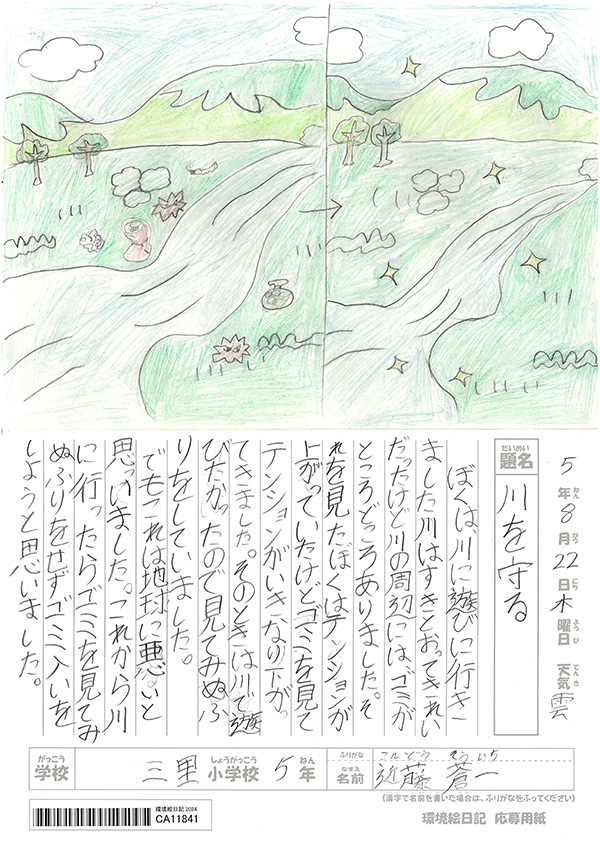 5年8月22日木曜日 天気雲
ねん がつ にち ようび てんき
だいめい
題名 川を守る
ぼくは川に遊びに行き
ました川はすきとおってきれい
だったけど川の周辺には、ゴミが
ところどころありました。そ
れを見たぼくはテンションが
上がっていたけどゴミを見て
テンションがいきなり下が。
てきました。そのときは川で遊
びたかったので見てみぬふ
りをしていました。
でもこれは地球に悪いと
思いました。これから川
に行ったらゴミを見てみ
ぬふりをせずゴミ入いを
しようと思いました。
がっこう しょうがっこう ねん
学校 三里 小学校 5年
ふりがな こんどう そういち
なまえ
名前 近藤 蒼一
(漢字で名前を書いた場合は、ふりがなをふってください)
環境絵日記2024
CA11841
環境絵日記 応募用紙